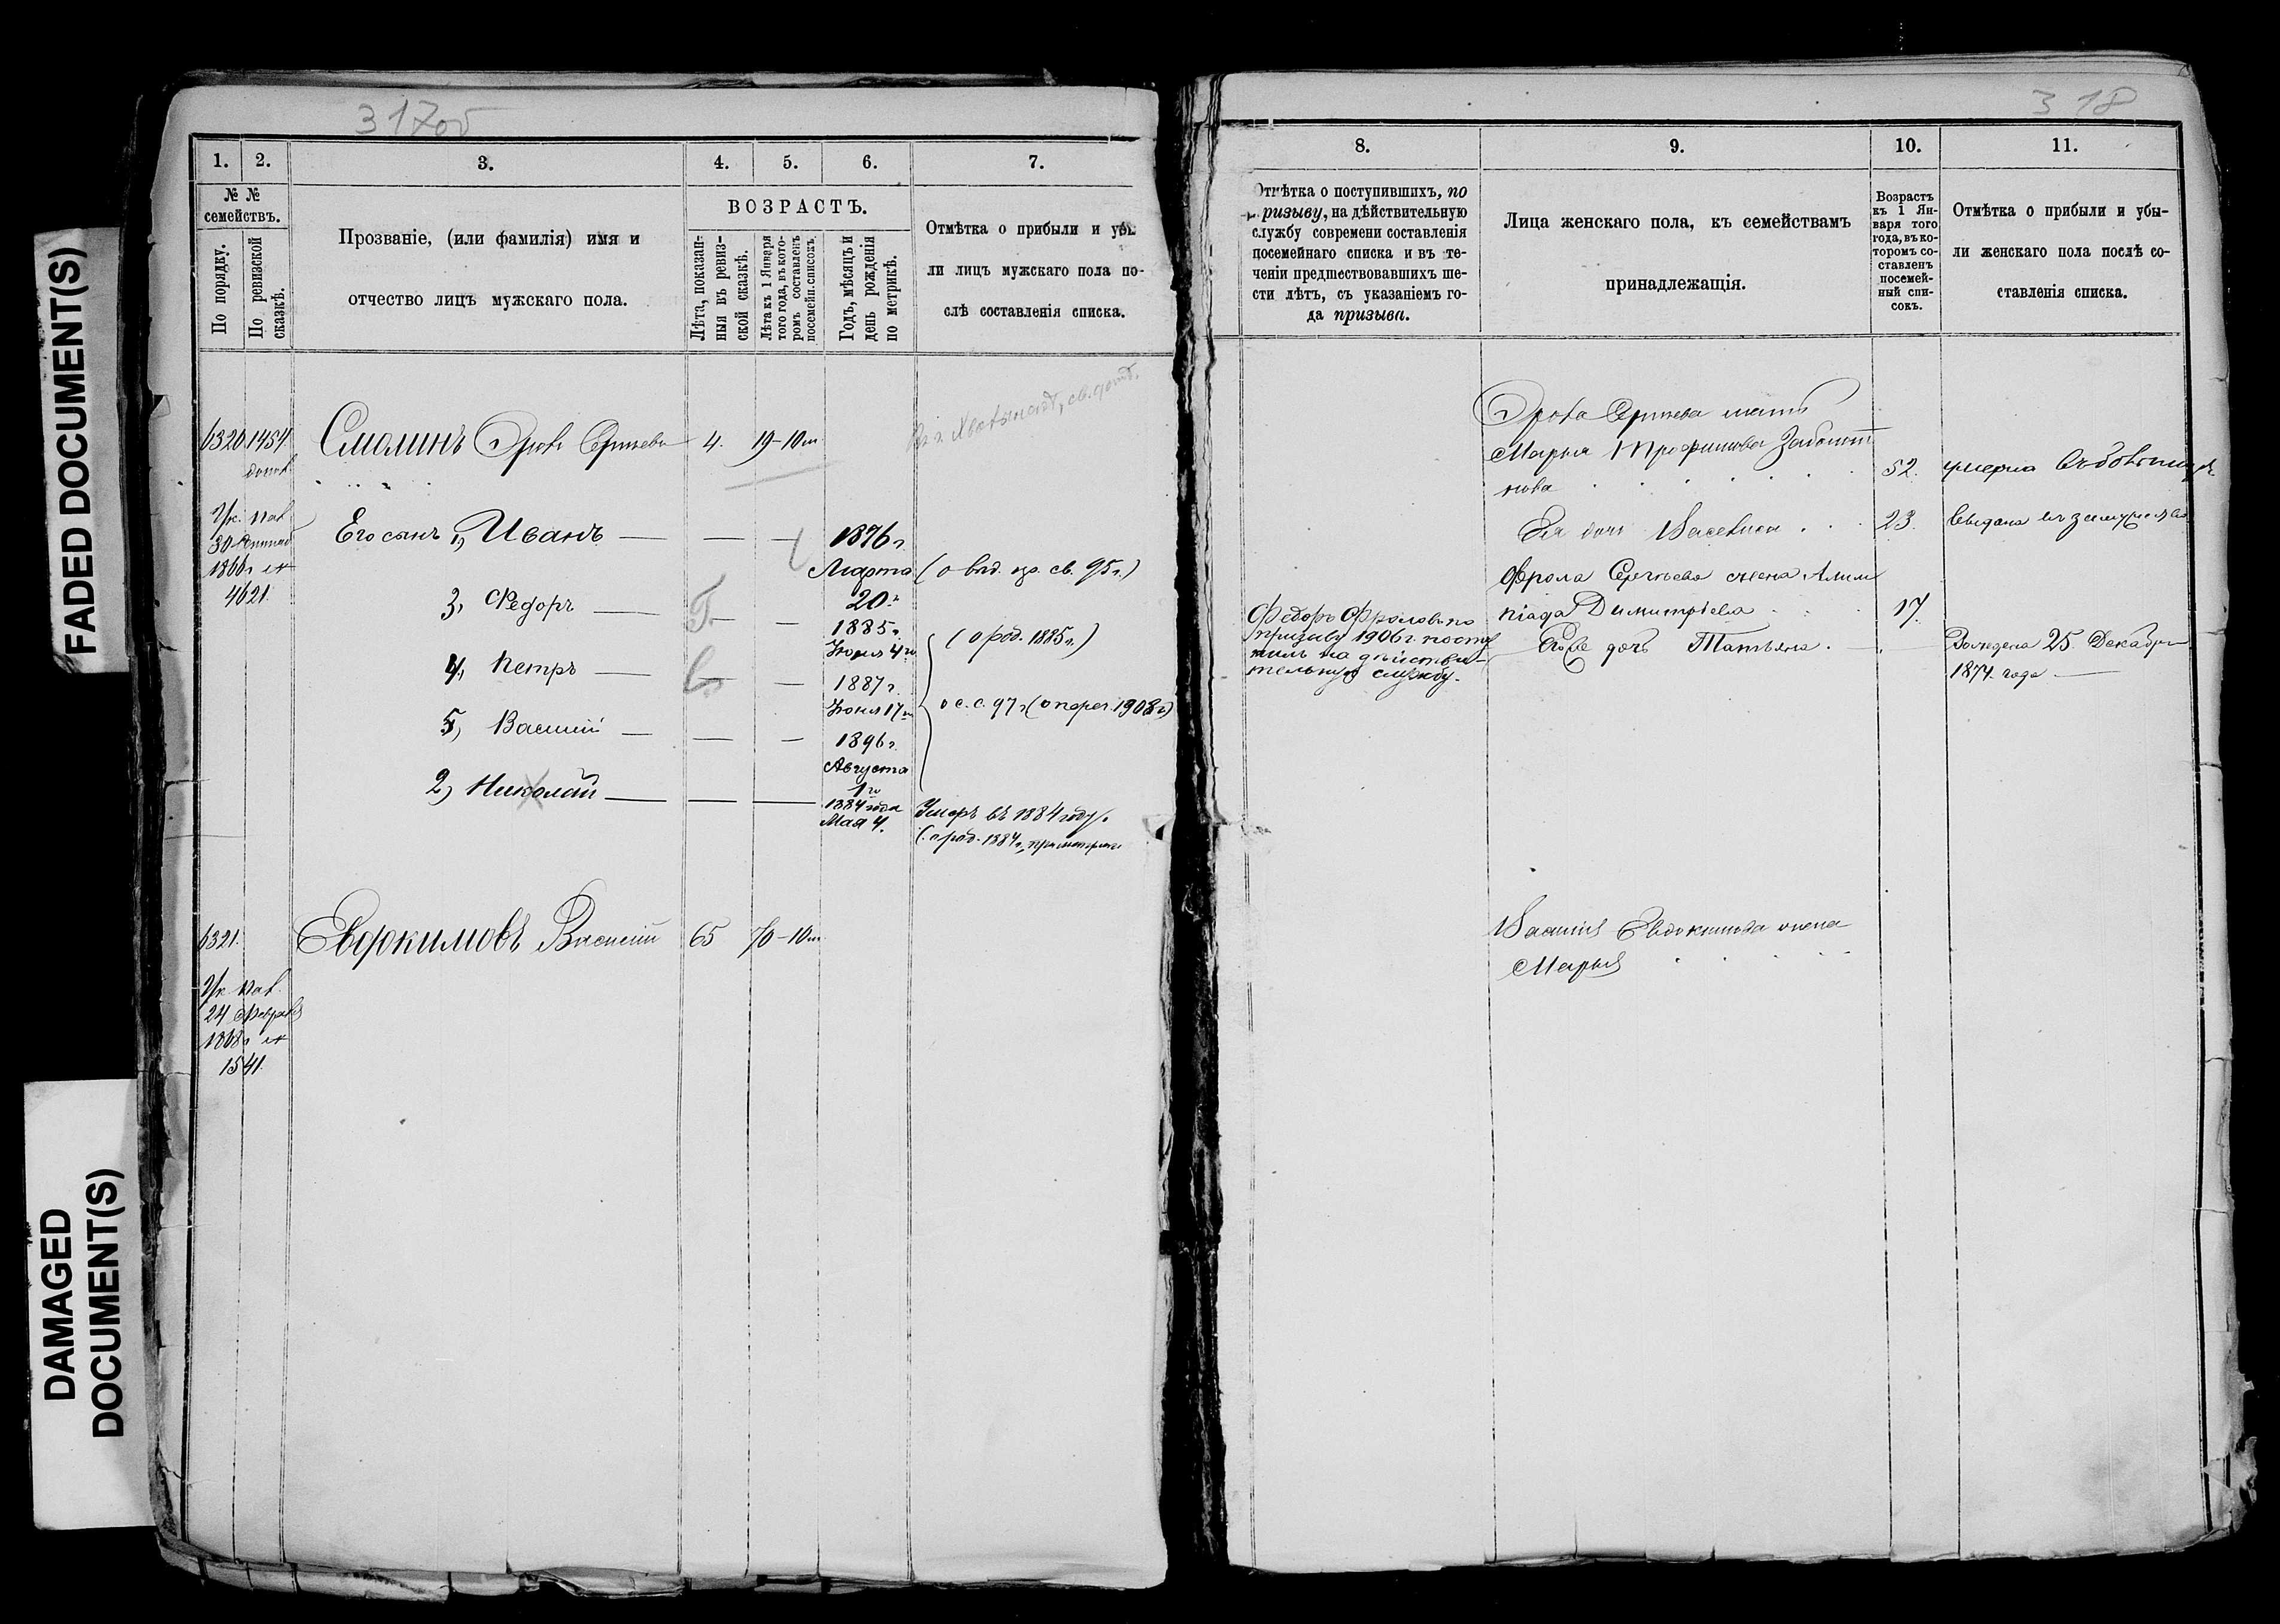 FADED DOCUMENT(S)
DAMAGED
DOCUMENT(S)
317об
1. 2. 3. 4. 5. 6. 7.
№ №
семействъ.
По порядку.
По ревизской
сказкѣ.
Прозваніе, (или фамилія) имя и
отчество лицъ мужскаго пола.
ВОЗРАСТЪ.
Лѣта, показан-
ныя въ ревиз-
ской сказкѣ.
Лѣта къ 1 Января
того года, въ кото-
ромъ составленъ
посемейн. списокъ.
Годъ, мѣсяцъ и
день рожденія
по метрикѣ.
Отмѣтка о прибыли и убы
ли лицъ мужскаго пола по-
слѣ составленія списка.
6320. 1454 Смолинъ Фролъ Сергѣевъ 4. 19-10м
Ук. Пал.
30
1866г №
4621.
Его сынъ 1, Иванъ — — — 1876г.
Марта
20.
3, Федоръ — — 1885г.
Іюня 4го
( о род. 1885г.)
4, Петръ — — — 1887г.
Іюня 17го
о с. с. 97г (о переч. 1908г)
5, Василій — — — 1896г.
Августа
1го
2, Николай — — — 1884 года
Мая 4.
Умеръ въ 1884 году.
6321. Евдокимовъ Василій 65 70-10м
Ук. Пал.
24 Февраля
1868г №
1541.
318
8. 9. 10. 11.
Отмѣтка о поступившихъ, по
призыву, на дѣйствительную
службу современи составленія
посемейнаго списка и въ те-
ченіи предшествовавшихъ ше-
сти лѣтъ, съ указаніемъ го-
да призыва.
Лица женскаго пола, къ семействамъ
принадлежащія.
Возрастъ
къ 1 Ян-
варя того
года, въ ко-
торомъ со-
ставленъ
посемей-
ный спи-
сокъ.
Отмѣтка о прибыли и убы-
ли женскаго пола послѣ со-
ставленія списка.
Фрола Сергѣева мать
Марья Трофимова
52. умерла
Ея дочь 23. Выдана въ замужество
Фрола Сергѣева жена Алим
піада Димитріева 17.
Федоръ Фроловъ по
призыву 1906г. посту
пилъ на дѣйстви-
тельную службу.
дочь Татьяна.
25 Декабря
1874 года —
Василія Евдокимова жена
Марья